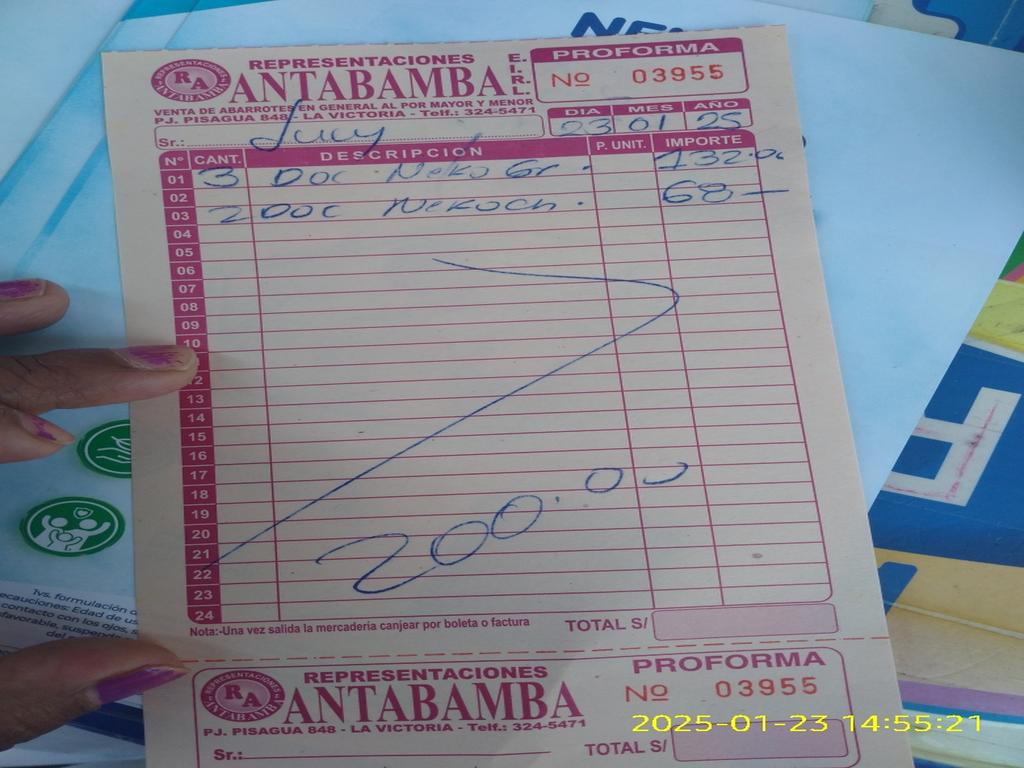 REPRESENTACIONES
ANTABAMBA E.I.R.L.
REPRESENTACIONES RA ANTABAMBA
VENTA DE ABARROTES EN GENERAL AL POR MAYOR Y MENOR
PJ. PISAGUA 848 - LA VICTORIA - Telf.: 324-5471
PROFORMA
Nº 03955
DIA MES AÑO
23 01 25
Sr.: Lucy
Nº CANT. DESCRIPCION P. UNIT. IMPORTE
01 3 Doc Neko Gr. 132.00
02 68-
03 2 Doc Nekoch.
04
05
06
07
08
09
10
12
13
14
15
16
17
18
19
20
21
22
23
24
200.00
Nota:-Una vez salida la mercaderia canjear por boleta o factura
TOTAL S/
REPRESENTACIONES
ANTABAMBA
REPRESENTACIONES RA ANTABAMBA
PJ. PISAGUA 848 - LA VICTORIA - Telf.: 324-5471
Sr.:
PROFORMA
Nº 03955
TOTAL S/
formulación
Edad de
contacto con los ojos,
2025-01-23 14:55:21